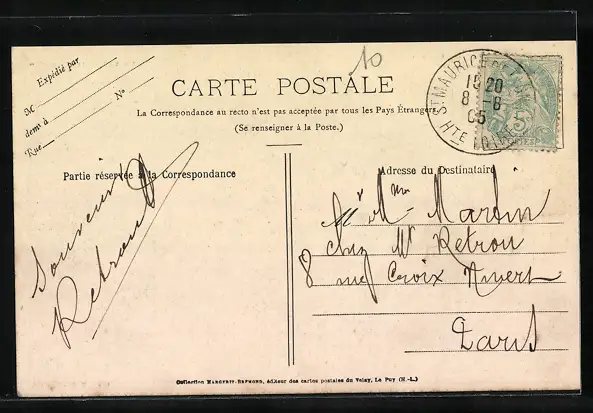 10
Expédié par
M
dem^t à N^o
Rue
CARTE POSTALE
La Correspondance au recto n'est pas acceptée par tous les Pays Étrangers
(Se renseigner à la Poste.)
ST MAURICE DE
15 20
8 -8
05
HTE LOIRE
Partie réservée à la Correspondance
Adresse du Destinataire
Souvenir
Retrou
M^r M^me Martin
chez M^r Retrou
8 rue Croix Nivert
Paris
Collection MARGERIT-BRÉMOND, éditeur des cartes postales du Velay, Le Puy (H.-L.)